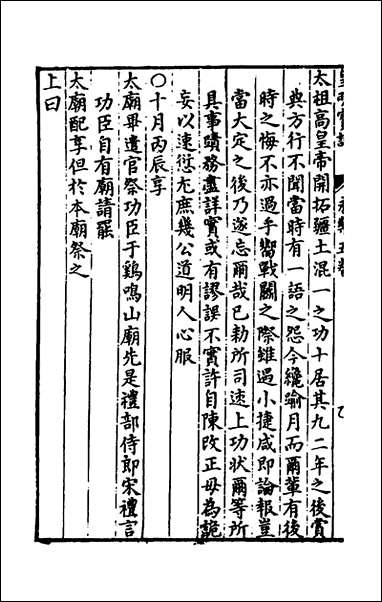 太祖高皇帝開拓疆土混一之功十居其九二年之後賞
典方行不聞當時有一語之怨今纔踰月而爾輩有後
時之悔不亦過乎嚮戰鬬之際雖遇小捷咸即論報豈
當大定之後乃遂忘爾哉已勅所司速上功狀爾等所
具事蹟務盡詳實或有謬誤不實許自陳改正毋為詭
妄以速愆尤庶幾公道明人心服
○十月丙辰享
太廟畢遣官祭功臣于鷄鳴山廟先是禮部侍郎宋禮言
功臣自有廟請罷
太廟配享但於本廟祭之
上曰